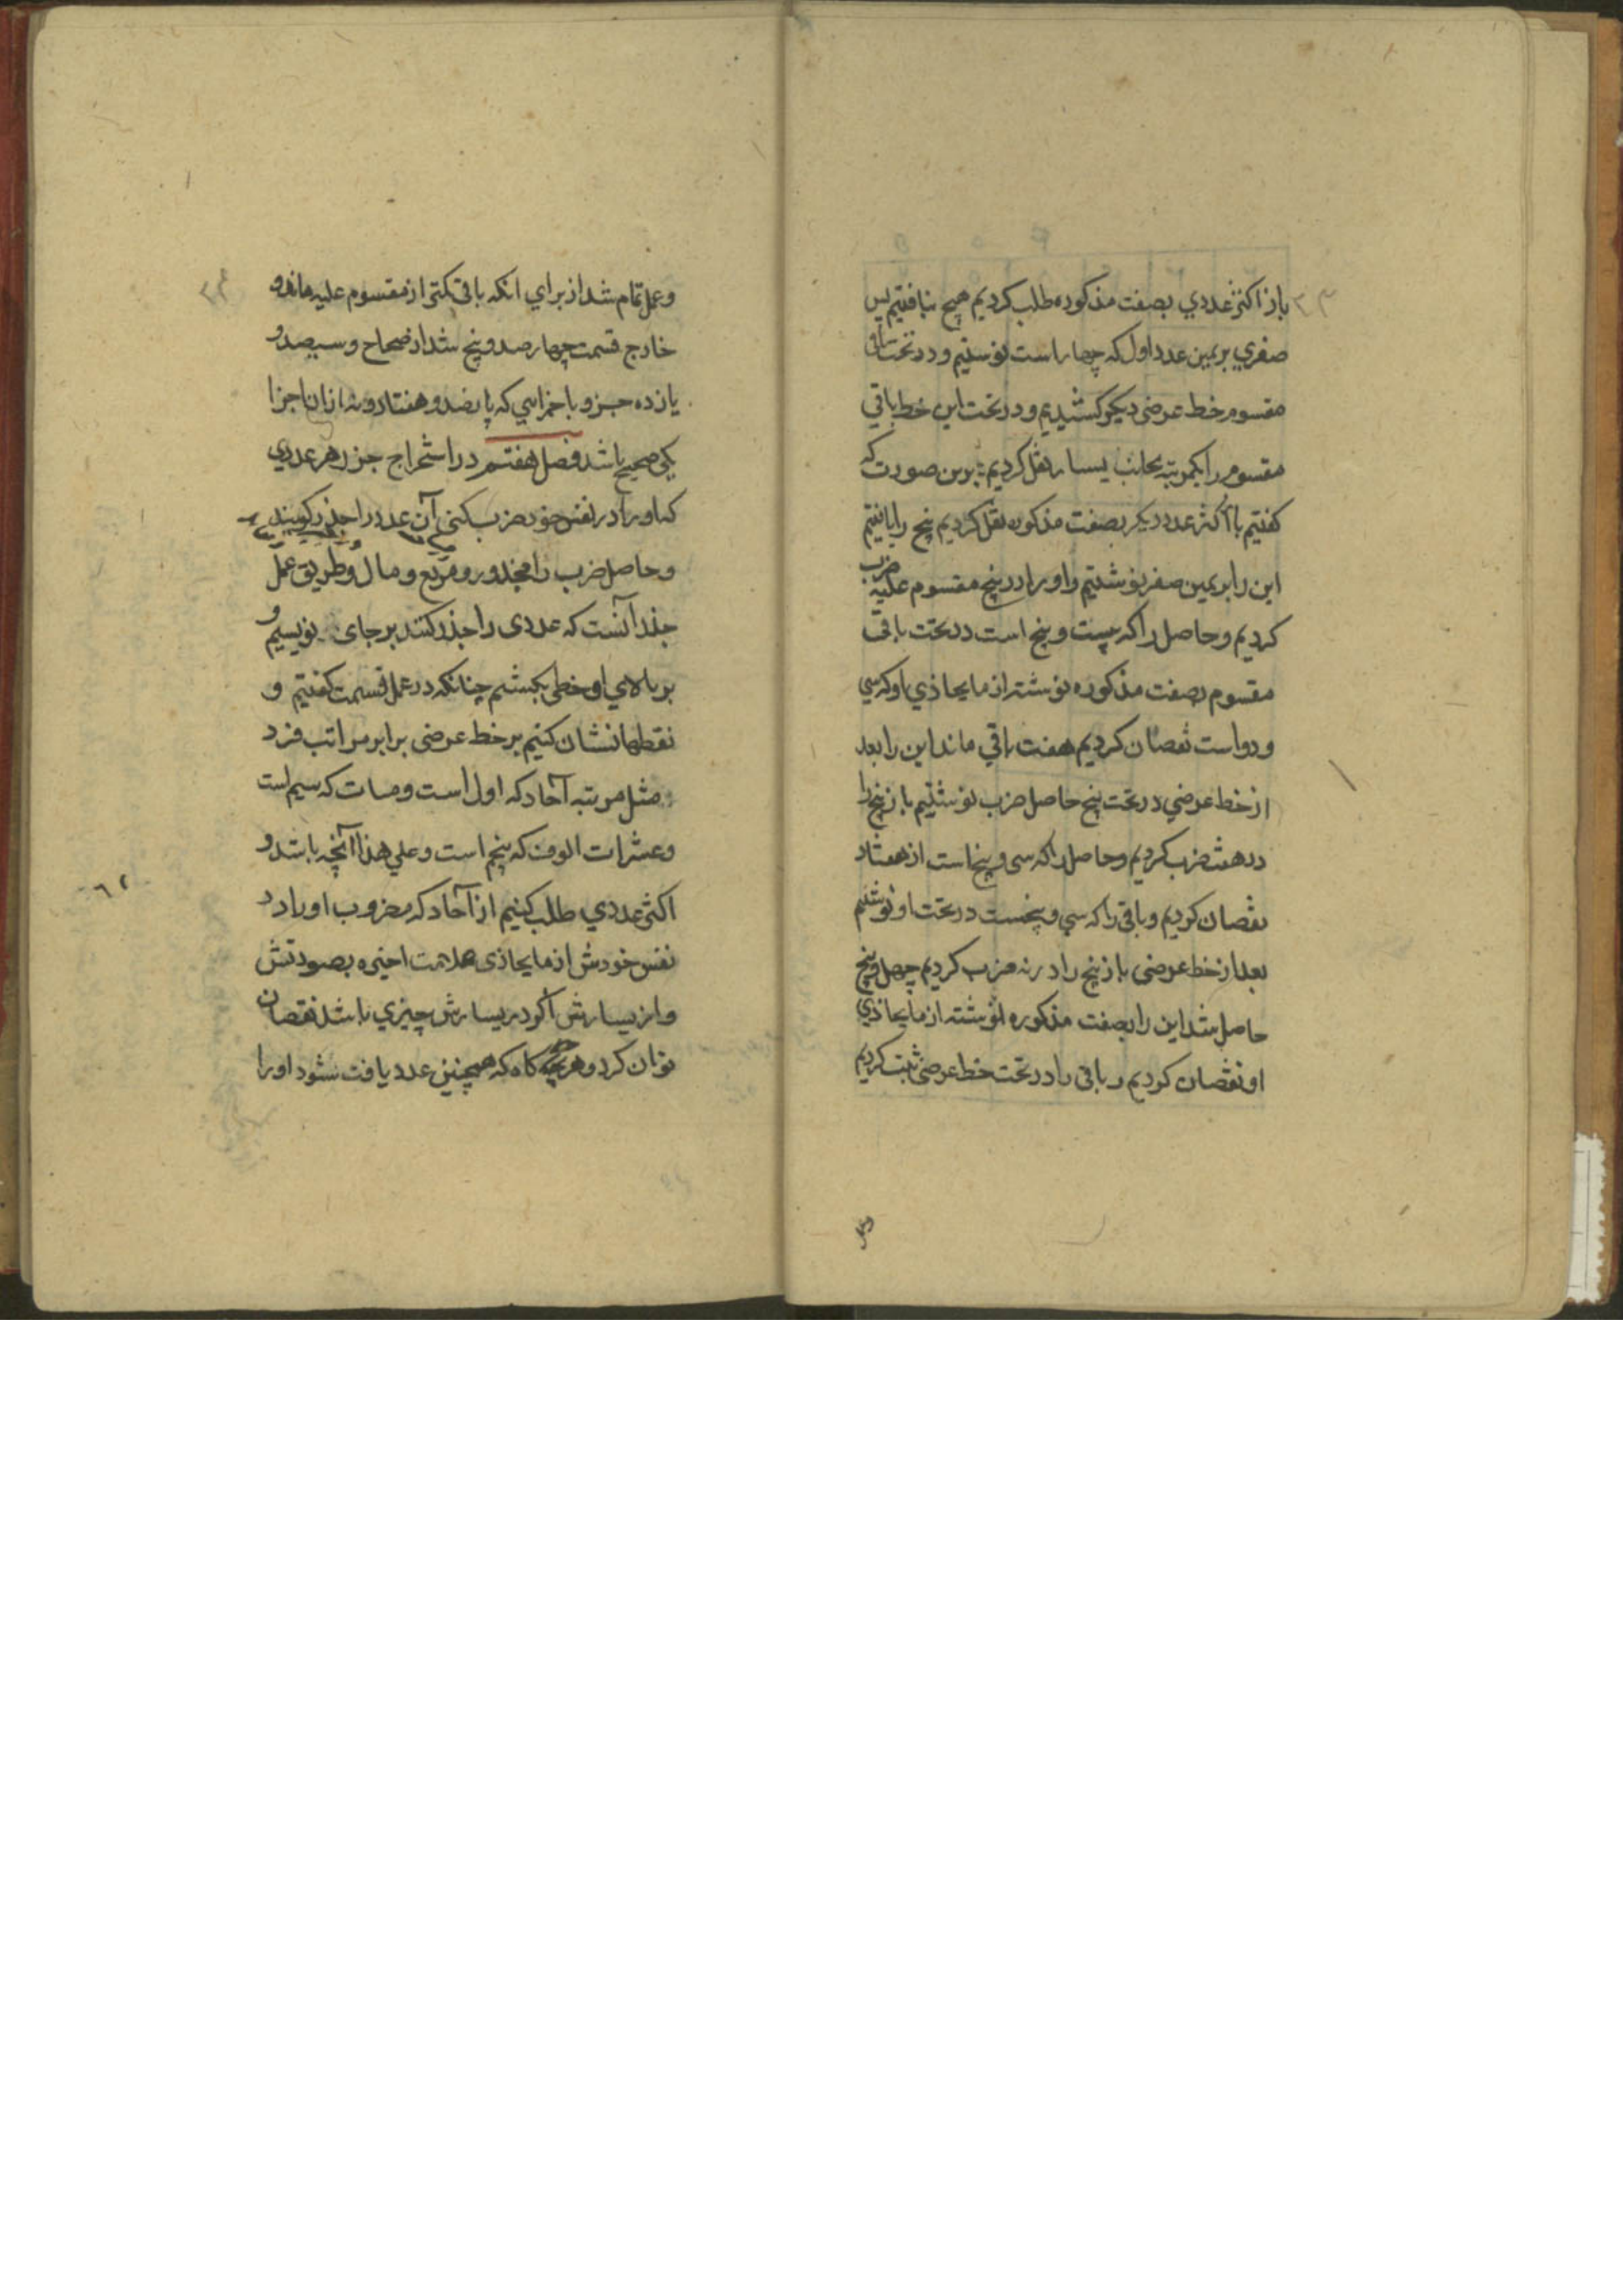 باز اکثر عددي بصفت مذکوره طلب کردیم هیچ نیافتیم پس
صفري بریمین عدد اول که چهار است نوشتیم و در تحت باقي
مقسوم خط عرضي دیکر کشیدیم و در تحت این خط باقي
مقسوم را بکمرتبه بجانب یسار نقل کردیم بدین صورت که
کفتیم باز اکثر عدد دیکر بصفت مذکوره نقل کردیم پنج را یافتیم
این را بریمین صفر نوشتیم و او را در پنج مقسوم علیه ضرب
کردیم و حاصل را که بیست و پنج است در تحت باقي
مقسوم بصفت مذکوره نوشته از مایحاذي او که سي
و دو است نقصان کردیم هفت باقي ماند این را بعد
از خط عرضي در تحت پنج حاصل ضرب نوشتیم باز پنج را
در هشت ضرب کردیم و حاصل را که سی و پنج است از هفتاد
نقصان کردیم و باقي را که سي و پنجست در تحت او نوشتیم
بعد از خط عرضي باز پنج را در نه ضرب کردیم چهل و پنج
حاصل شد این را بصفت مذکوره نوشته از مایحاذي
او نقصان کردیم و باقي را در تحت خط عرضي ثبت کردیم
وعمل
و عمل تمام شد از براي انکه باقي کمتر از مقسوم علیه ماند و
خارج قسمت چهار صد و پنج شد از صحاح و سیصد و
یازده جزو با جزایي که پانصد و هفتاد و نه ازان اجزا
یکي صحیح باشد فصل هفتم در استخراج جزر هر عددي
که او را در نفس خود ضرب کني آن عدد را جذر کویند
و حاصل ضرب را مجذور و مربع و مال و طریق عمل
جذر آنست که عددی را جذر کنند بر جای نویسیم و
بر بالاي او خطی بکشیم چنانکه در عمل قسمت کفتیم و
نقطها نشان کنیم بر خط عرضی برابر مراتب فرد
مثل مرتبه آحاد که اول است و مات که سیم است
و عشرات الوف که پنجم است و علي هذا آنچه باشد و
اکثر عددي طلب کنیم از آحاد که مضروب او را در
نفس خودش از مایحاذی علامت اخیره بصورتش
و از یسارش اکر در یسارش چیزي باشد نقصان
توان کرد و هر کاه که همچنین عدد یافت نشود او را